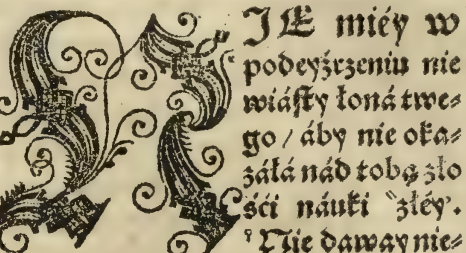 NIE miéy w
podeyźrzeniu nie
wiáſty łoná twe⸗
go / áby nie oka⸗
záłá nád tobą zło
ści náuki `złéy'.
Nie daway nie⸗